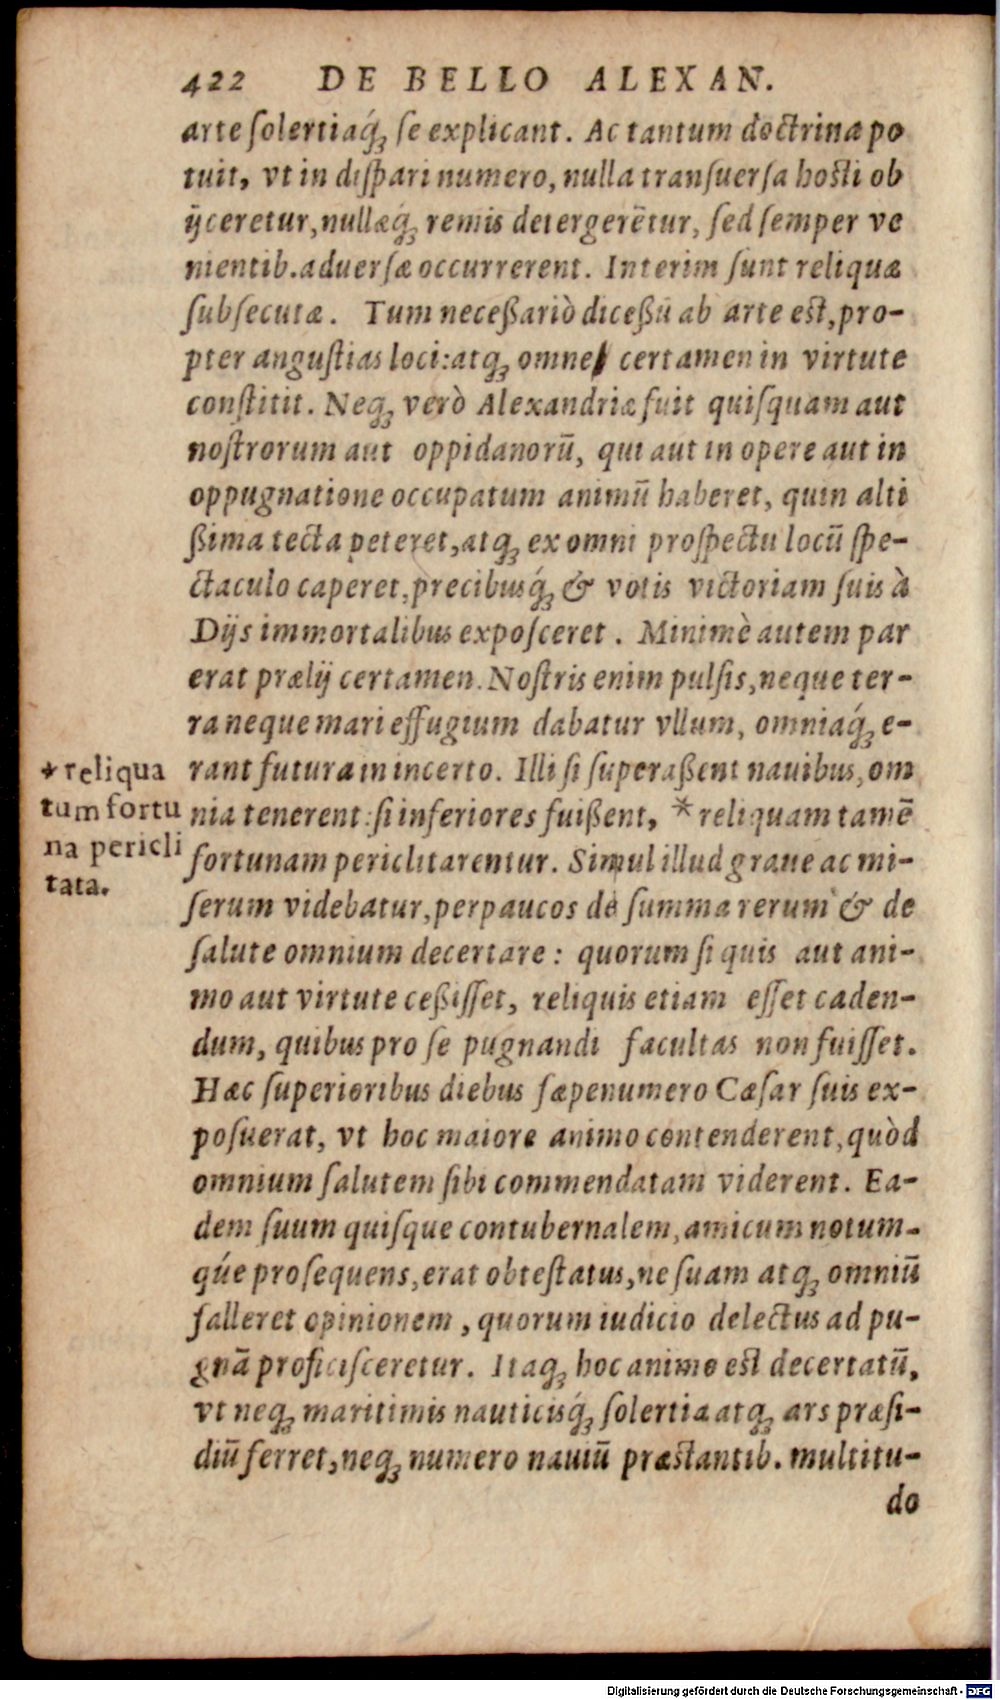 422 DE BELLO ALEXAN.
arte ſolertiaq́ꝫ ſe explicant. Ac tantum doctrina po
tuit, vt in diſpari numero, nulla tranſuerſa hosti ob
ijceretur, nullæq́ꝫ remis detergerētur, ſed ſemper ve
nientib. aduerſæ occurrerent. Interim ſunt reliquæ
ſubſecutæ. Tum neceßariò diceßū ab arte est, pro-
pter anguſtias loci: atqꝫ omne certamen in virtute
conſtitit. Neqꝫ verò Alexandriæ fuit quiſquam aut
noſtrorum aut oppidanorū, qui aut in opere aut in
oppugnatione occupatum animū haberet, quin alti
ßima tecta peteret, atqꝫ ex omni proſpectu locū ſpe-
ctaculo caperet, precibusq́ꝫ & votis victoriam ſuis à
Dijs immortalibus expoſceret. Minimè autem par
erat prælij certamen. Noſtris enim pulſis, neque ter-
ra neque mari effugium dabatur vllum, omniaq́ꝫ e-
rant futura in incerto. Illi ſi ſuperaßent nauibus, om
nia tenerent: ſi inferiores fuißent, * reliquam tamē
fortunam periclitarentur. Simul illud graue ac mi-
ſerum videbatur, perpaucos de ſumma rerum & de
ſalute omnium decertare: quorum ſi quis aut ani-
mo aut virtute ceßiſſet, reliquis etiam eſſet caden-
dum, quibus pro ſe pugnandi facultas non fuiſſet.
Hæc ſuperioribus diebus ſæpenumero Cæſar ſuis ex-
poſuerat, vt hoc maiore animo contenderent, quòd
omnium ſalutem ſibi commendatam viderent. Ea-
dem ſuum quiſque contubernalem, amicum notum-
q́ue proſequens, erat obteſtatus, ne ſuam atqꝫ omniū
falleret opinionem, quorum iudicio delectus ad pu-
gnā proficiſceretur. Itaqꝫ hoc animo est decertatū,
vt neqꝫ maritimis nauticisq́ꝫ ſolertia atqꝫ ars præſi-
diū ferret, neqꝫ numero nauiū præstantib. multitu-
do
* reliqua
tum fortu
na pericli
tata.
Digitalisierung gefördert durch die Deutsche Forschungsgemeinschaft - DFG